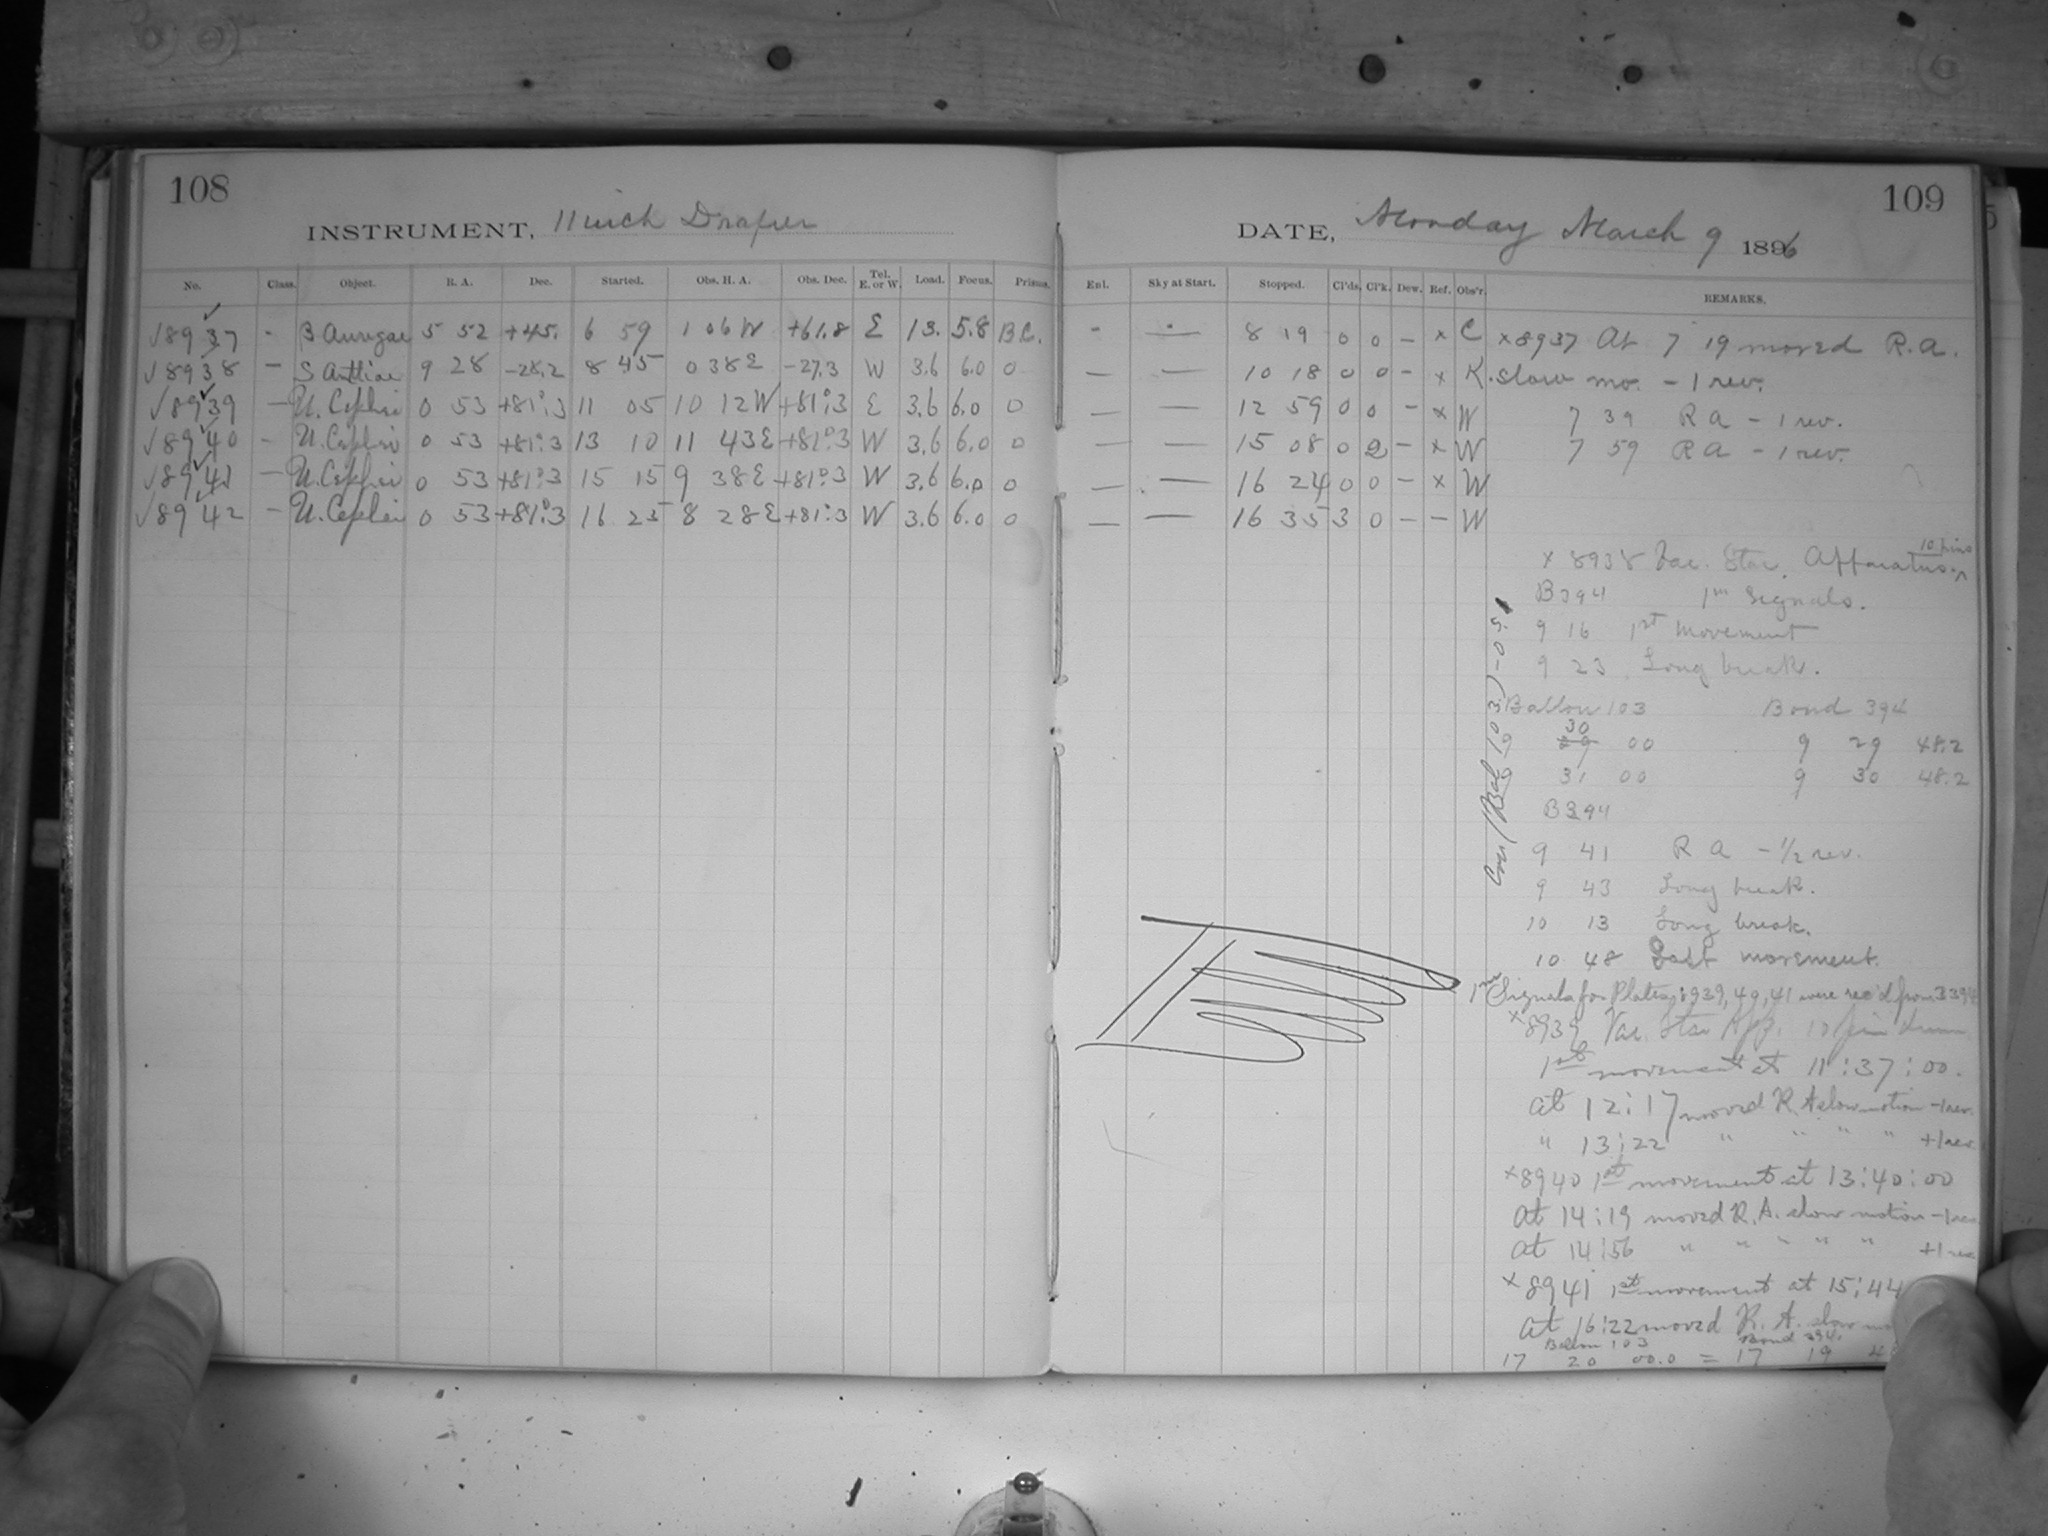 108
INSTRUMENT, 11 inch Draper
No. Class. Object. R. A. Dec. Started. Obs. H. A. Obs. Dec. Tel. E. or W. Load. Focus. Prisms.
√8937 - β Aurigae 5 52 +45. 6 59 1 06 W +61.8 E 13. 5.8 B.C.
√8938 - S Antliae 9 28 -28.2 8 45 0 38 E -27.3 W 3.6 6.0 0
√8939 - U. Cephei 0 53 +81°.3 11 05 10 12 W +81°.3 E 3.6 6.0 0
√8940 - U. Cephei 0 53 +81°.3 13 10 11 43 E +81°.3 W 3.6 6.0 0
√8941 - U. Cephei 0 53 +81°.3 15 15 9 38 E +81°.3 W 3.6 6.0 0
√8942 - U. Cephei 0 53 +81°.3 16 25 8 28 E +81°.3 W 3.6 6.0 0
109
DATE, Monday March 9 1896
Enl. Sky at Start. Stopped. Cl'ds. Cl'k. Dew. Ref. Obs'r. REMARKS.
- - 8 19 0 0 - x C x8937 At 7 19 moved R.A.
- - 10 18 0 0 - x K. slow mo. - 1 rev.
- - 12 59 0 0 - x W 7 39 R A - 1 rev.
- - 15 08 0 2 - x W 7 59 R A - 1 rev.
- - 16 24 0 0 - x W
- - 16 35 3 0 - - W
x 8938 Var. Star. Apparatus. 10 pins
B394 1m Signals.
9 16 1st Movement
9 23 Long break.
Ballou 103 Bond 394
9 29 30 00 9 29 48.2
9 31 00 9 30 48.2
B394
9 41 R A - 1/2 rev.
9 43 Long break.
10 13 Long break.
10 48 Last movement.
1m Signals for Plates 8939, 40, 41 were rec'd from B394
x8939 Var. Star App. 10 pin drum
1st movement at 11:37:00.
At 12:17 moved R. A slow motion -1 rev.
" 13:22 " " " " +1 rev.
x8940 1st movement at 13:40:00
At 14:19 moved R. A. slow motion -1 rev.
At 14:56 " " " " " +1 rev
x8941 1st movement at 15:44
At 16:22 moved R. A. slow mo
Ballou 103 Bond 394.
17 20 00.0 = 17 19 4